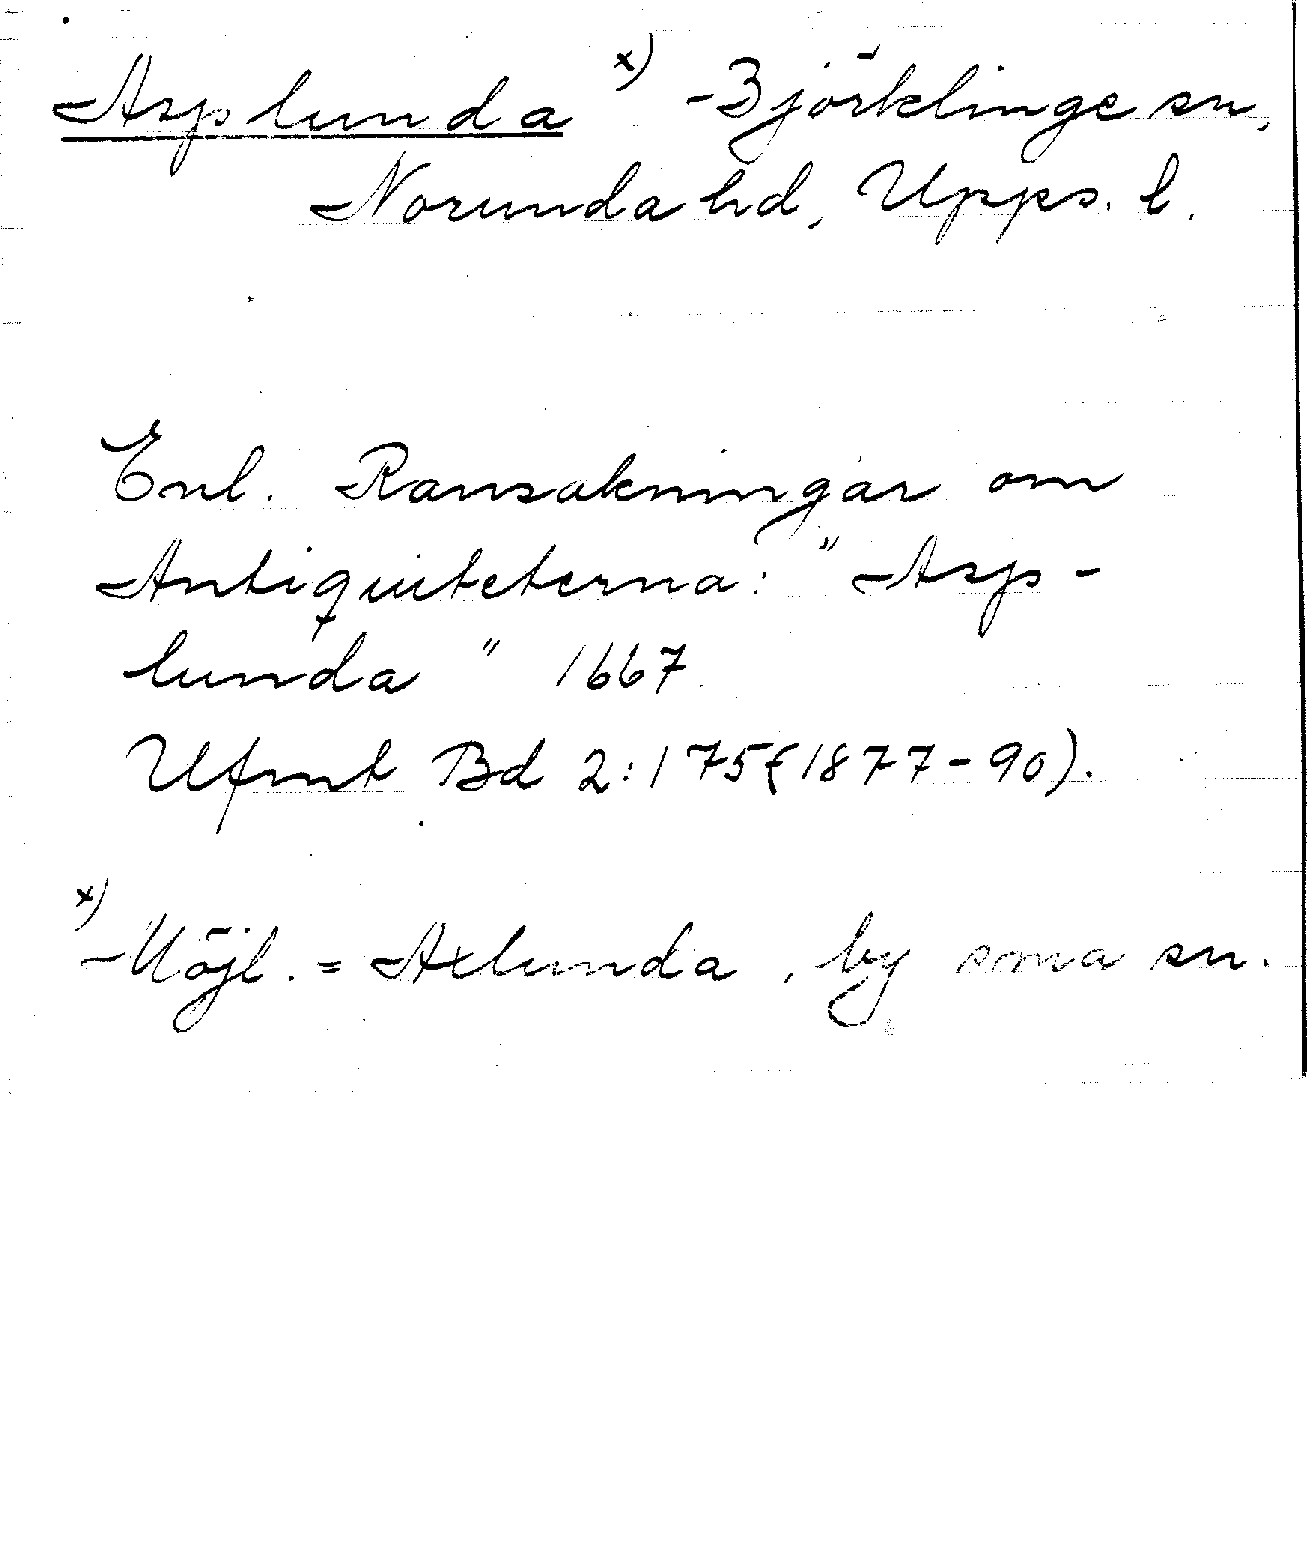 Asplunda x) Björklinge sn,
Norunda hd, Upps. l.
Enl. Ransakningar om
Antiquiteterna: "Asp-
lunda" 1667
Ufmt Bd 2:175f (1877-90).
x) Möjl. = Axlunda, by sma sn.